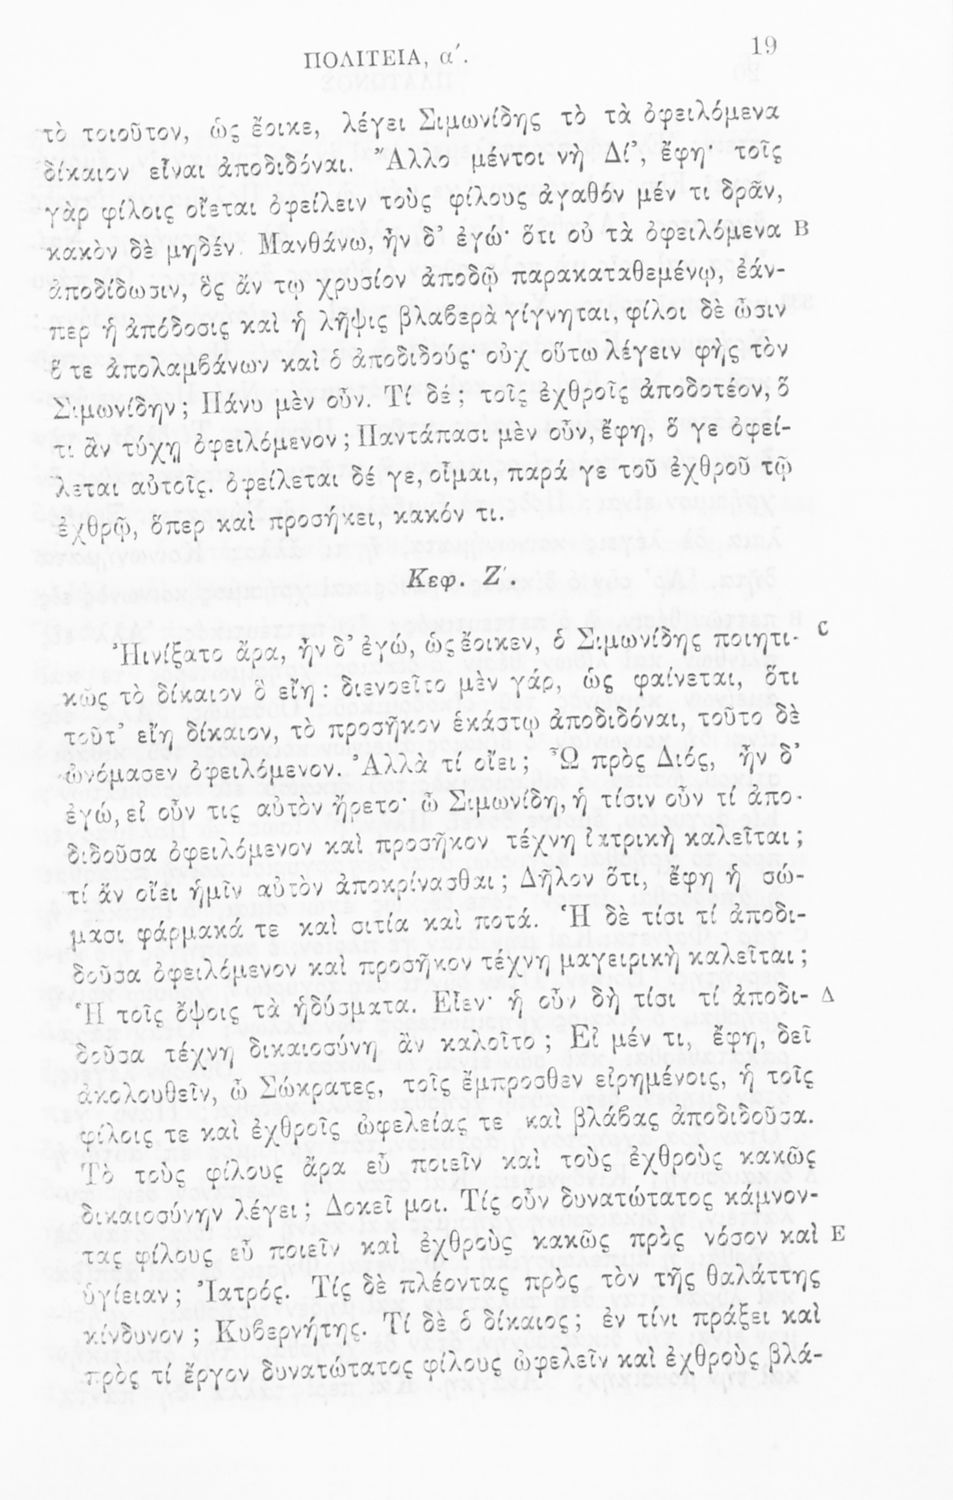 ΠΟΛΙΤΕΙΑ, α΄.
19
τὸ τοιοῦτον, ὡς ἔοικε, λέγει Σιμωνίδης τὸ τὰ ὀφειλόμενα
δίκαιον εἶναι ἀποδιδόναι. Ἄλλο μέντοι νὴ Δί', ἔφη· τοῖς
γὰρ φίλοις οἴεται ὀφείλειν τοὺς φίλους ἀγαθόν μέν τι δρᾶν,
κακὸν δὲ μηδέν. Μανθάνω, ἦν δ' ἐγώ· ὅτι οὐ τὰ ὀφειλόμενα B
ἀποδίδωσιν, ὃς ἄν τῳ χρυσίον ἀποδῷ παρακαταθεμένῳ, ἐάν-
περ ἡ ἀπόδοσις καὶ ἡ λῆψις βλαβερὰ γίγνηται, φίλοι δὲ ὦσιν
ὅ τε ἀπολαμβάνων καὶ ὁ ἀποδιδούς· οὐχ οὕτω λέγειν φῂς τὸν
Σιμωνίδην; Πάνυ μὲν οὖν. Τί δέ; τοῖς ἐχθροῖς ἀποδοτέον, ὅ
τι ἂν τύχῃ ὀφειλόμενον; Παντάπασι μὲν οὖν, ἔφη, ὅ γε ὀφεί-
λεται αὐτοῖς. ὀφείλεται δέ γε, οἶμαι, παρά γε τοῦ ἐχθροῦ τῷ
ἐχθρῷ, ὅπερ καὶ προσήκει, κακόν τι.
Κεφ. Ζ΄.
Ἠινίξατο ἄρα, ἦν δ' ἐγώ, ὡς ἔοικεν, ὁ Σιμωνίδης ποιητι- C
κῶς τὸ δίκαιον ὃ εἴη: διενοεῖτο μὲν γάρ, ὡς φαίνεται, ὅτι
τοῦτ' εἴη δίκαιον, τὸ προσῆκον ἑκάστῳ ἀποδιδόναι, τοῦτο δὲ
ὠνόμασεν ὀφειλόμενον. Ἀλλὰ τί οἴει; Ὦ πρὸς Διός, ἦν δ'
ἐγώ, εἰ οὖν τις αὐτὸν ἤρετο· ὦ Σιμωνίδη, ἡ τίσιν οὖν τί ἀπο-
διδοῦσα ὀφειλόμενον καὶ προσῆκον τέχνη ἰατρικὴ καλεῖται;
τί ἂν οἴει ἡμῖν αὐτὸν ἀποκρίνασθαι; Δῆλον ὅτι, ἔφη ἡ σώ-
μασι φάρμακά τε καὶ σιτία καὶ ποτά. Ἡ δὲ τίσι τί ἀποδι-
δοῦσα ὀφειλόμενον καὶ προσῆκον τέχνη μαγειρικὴ καλεῖται;
Ἡ τοῖς ὄψοις τὰ ἡδύσματα. Εἶεν· ἡ οὖν δὴ τίσι τί ἀποδι- Δ
δοῦσα τέχνη δικαιοσύνη ἂν καλοῖτο; Εἰ μέν τι, ἔφη, δεῖ
ἀκολουθεῖν, ὦ Σώκρατες, τοῖς ἔμπροσθεν εἰρημένοις, ἡ τοῖς
φίλοις τε καὶ ἐχθροῖς ὠφελείας τε καὶ βλάβας ἀποδιδοῦσα.
Τὸ τοὺς φίλους ἄρα εὖ ποιεῖν καὶ τοὺς ἐχθροὺς κακῶς
δικαιοσύνην λέγει; Δοκεῖ μοι. Τίς οὖν δυνατώτατος κάμνον-
τας φίλους εὖ ποιεῖν καὶ ἐχθροὺς κακῶς πρὸς νόσον καὶ E
ὑγίειαν; Ἰατρός. Τίς δὲ πλέοντας πρὸς τὸν τῆς θαλάττης
κίνδυνον; Κυβερνήτης. Τί δὲ ὁ δίκαιος; ἐν τίνι πράξει καὶ
πρὸς τί ἔργον δυνατώτατος φίλους ὠφελεῖν καὶ ἐχθροὺς βλά-